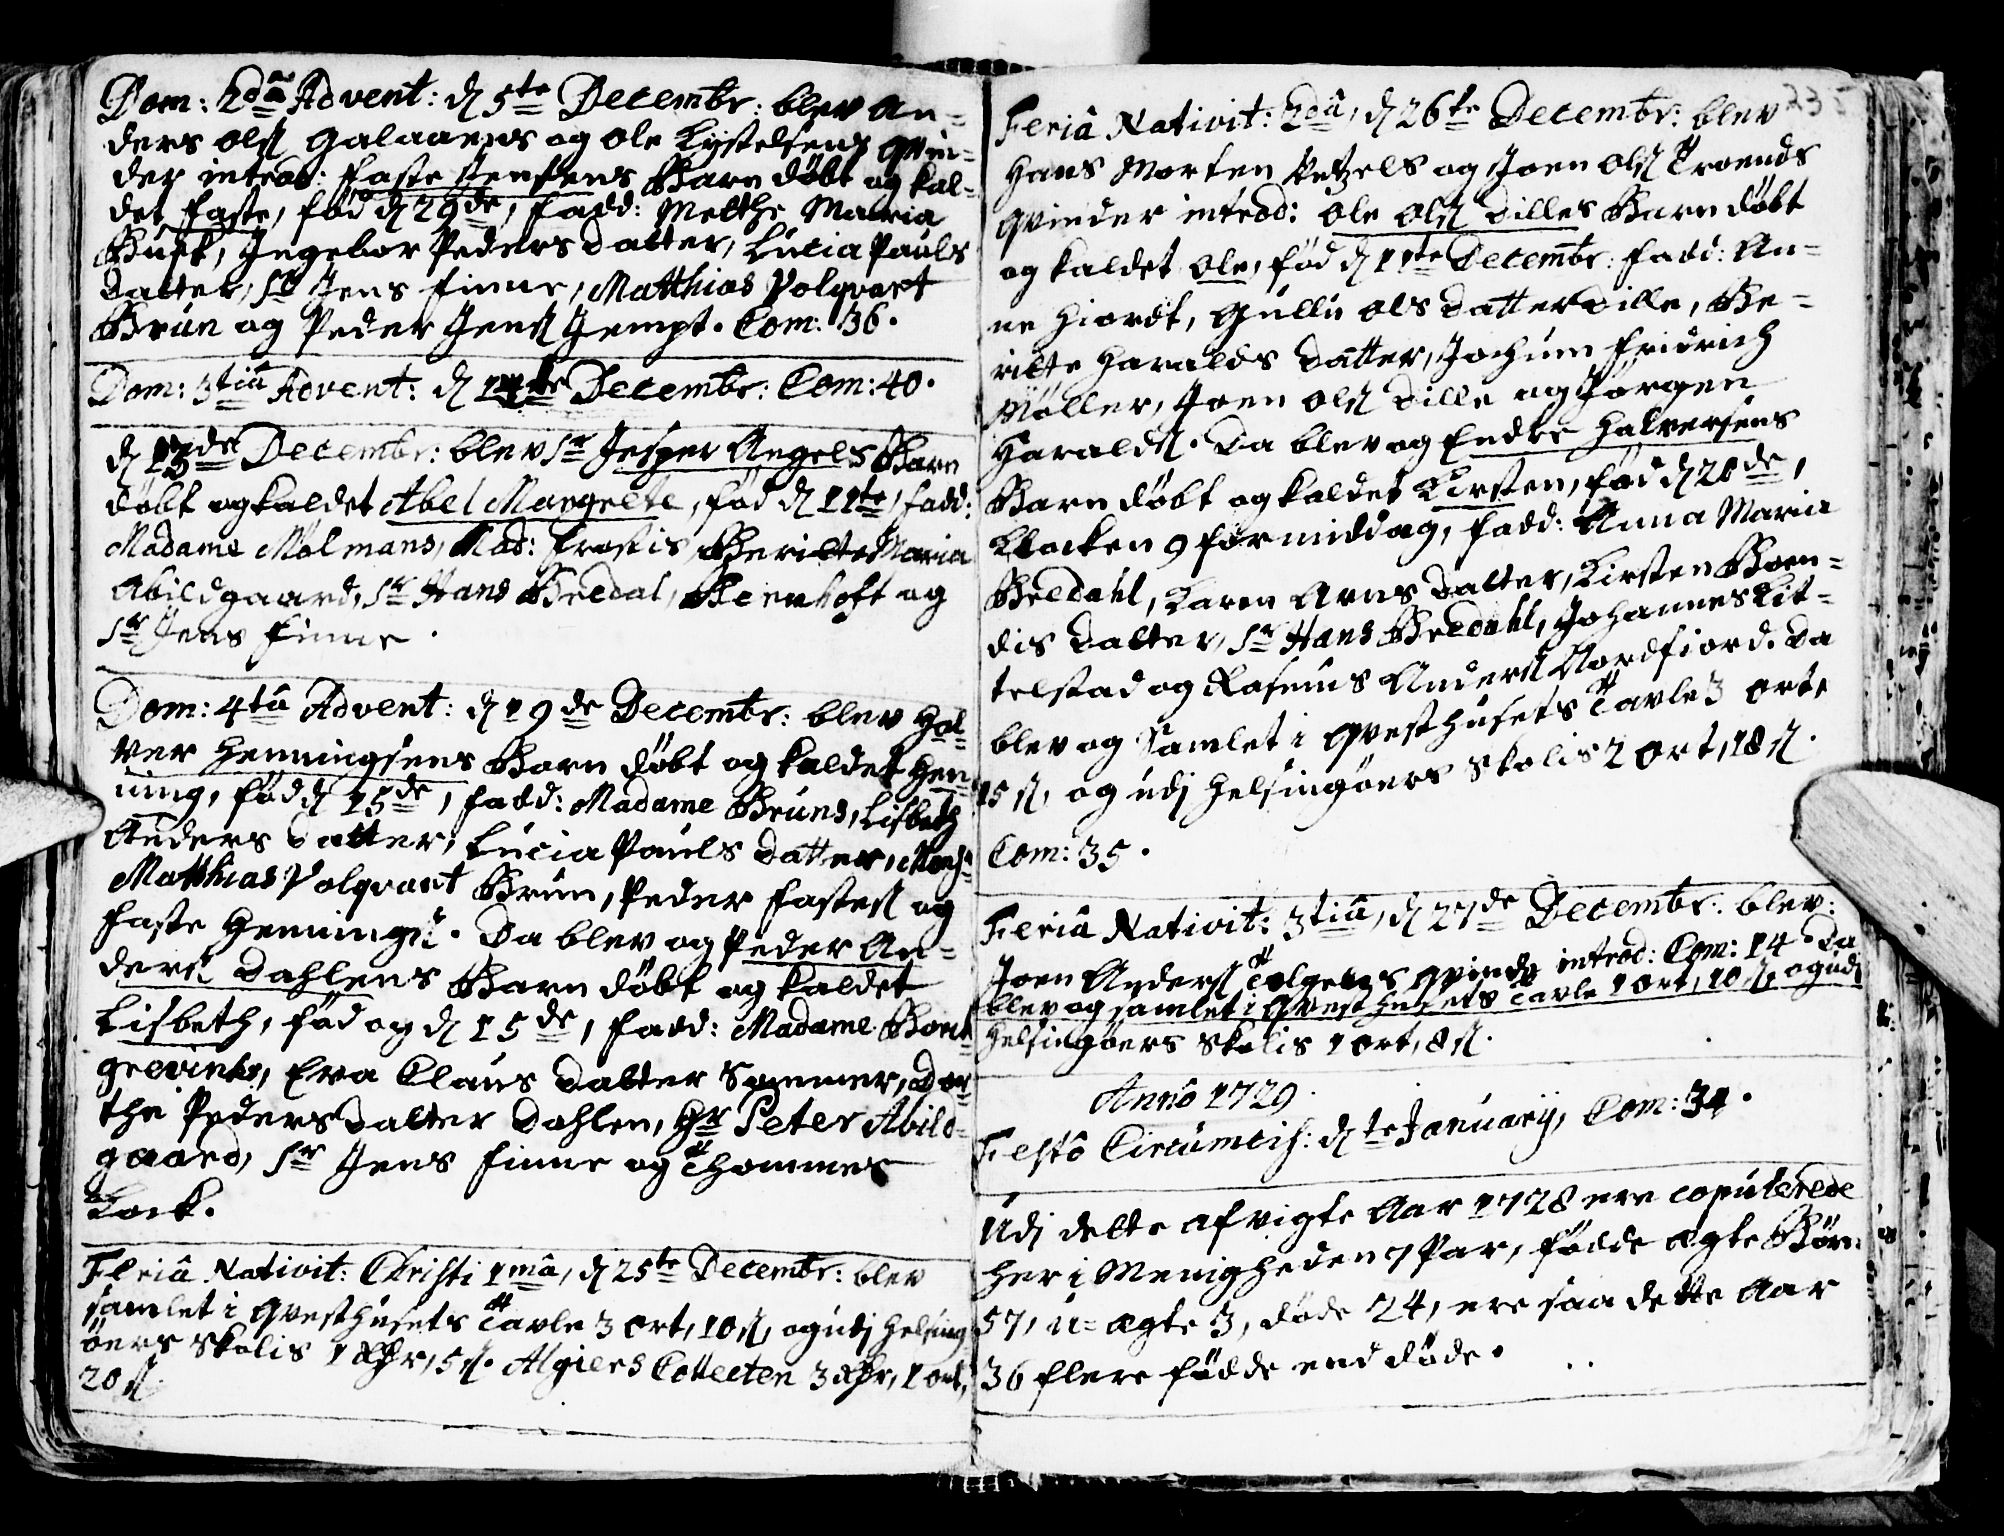 Dom: 2dâ Advent: d 5te Decembr: blev An=
ders Ols Galaaens og Ole Lystelsens qvin=
der introd: Faste Jensens Barn döbt og kal=
det Faste, föd d 29de, Fadd: Melthe Maria
Busk, Ingebor Peders datter, Lucia Pauls
datter, Sr Jens Finne, Matthias Volqvart
Brun og Peder Jens Jempt. Com: 36.
Dom: 3tiâ Advent: d 12te Decembr: Com: 40.
d 13de Decembr: blev Sr Jesper Angels Barn
döbt og kaldet Abel Margrete, föd d 11te, fadd:
Madame Mölmans, Mad: Frostis, Beritte Maria
Abildgaard, Sr Hans Bredal, Beenhoft og
Sr Jens Finne.
Dom: 4tâ Advent: d 19de Decembr: blev Hal=
ver Henningsens Barn döbt og kaldet Hen=
ning, föd d 15de, fadd: Madame Bruns, Lisbeth
Anders datter, Lucia Pauls datter, Mons:
Matthias Volqvart Brun, Peder Fastes og
Faste Hennings. Da blev og Peder An=
ders Dahlens Barn döbt og kaldet
Lisbeth, föd og d 15de, fadd: Madame Bort=
grevinks, Eva Claus datter Sommer, Dor=
the Peders datter Dahlen, Hr Peter Abild=
gaard, Sr Jens Finne og Thommes
Kock.
Feriâ Nativit: Christi 1mâ, d 25te Decembr: blev
samlet i qvesthusets Tavle 3 ort, 10 s, og udj Helsing
öers Skolis 1 Rdr, 5 s. Algiers Collecten 3 Rdr, 1 ort,
20 s.
235
Feriâ Nativit: 2dâ, d 26te Decembr: blev
Hans Morten Vetzels og Joen Ols Troends
qvinder introd: Ole Ols Dilles Barn döbt
og kaldet Ole, föd d 11te Decembr: fadd: An=
ne Hiordt, Gullu Ols datter Dille, Be=
ritte Haralds datter, Jochum Fridrich
Möller, Joen Ols Dille og Jörgen
Haralds. Da blev og Endre Halversens
Barn döbt og kaldet Kirsten, föd d 20de,
Klocken 9 formiddag, fadd: Anna Maria
Bredahl, Karen Arns datter, Kirsten Boen=
dis datter, Sr Hans Bredahl, Johannes Kit=
telstad og Rasmus Anders Nordfiord. Da
blev og Samlet i qvesthusets Tavle 3 ort,
15 s, og udj Helsingöers Skolis 2 ort, 18 s.
Com: 35.
Feriâ Nativit: 3tiâ, d 27de Decembr: blev:
Joen Anders Tolgens qvinde introd: Com: 14. Da
blev og samlet i qvesthusets Tavle 1 ort, 10 s, og udj
Helsingöers Skolis 1 ort, 8 s.
Annô 1729.
Festô Circumcis: d 1te Januarij, Com: 34.
Udj dette afvigte Aar 1728 ere copulerede
her i Menigheden 7 Par, födde ægte Börn
57, u=ægte 3, döde 24, ere saa dette Aar
36 flere födde end döde.